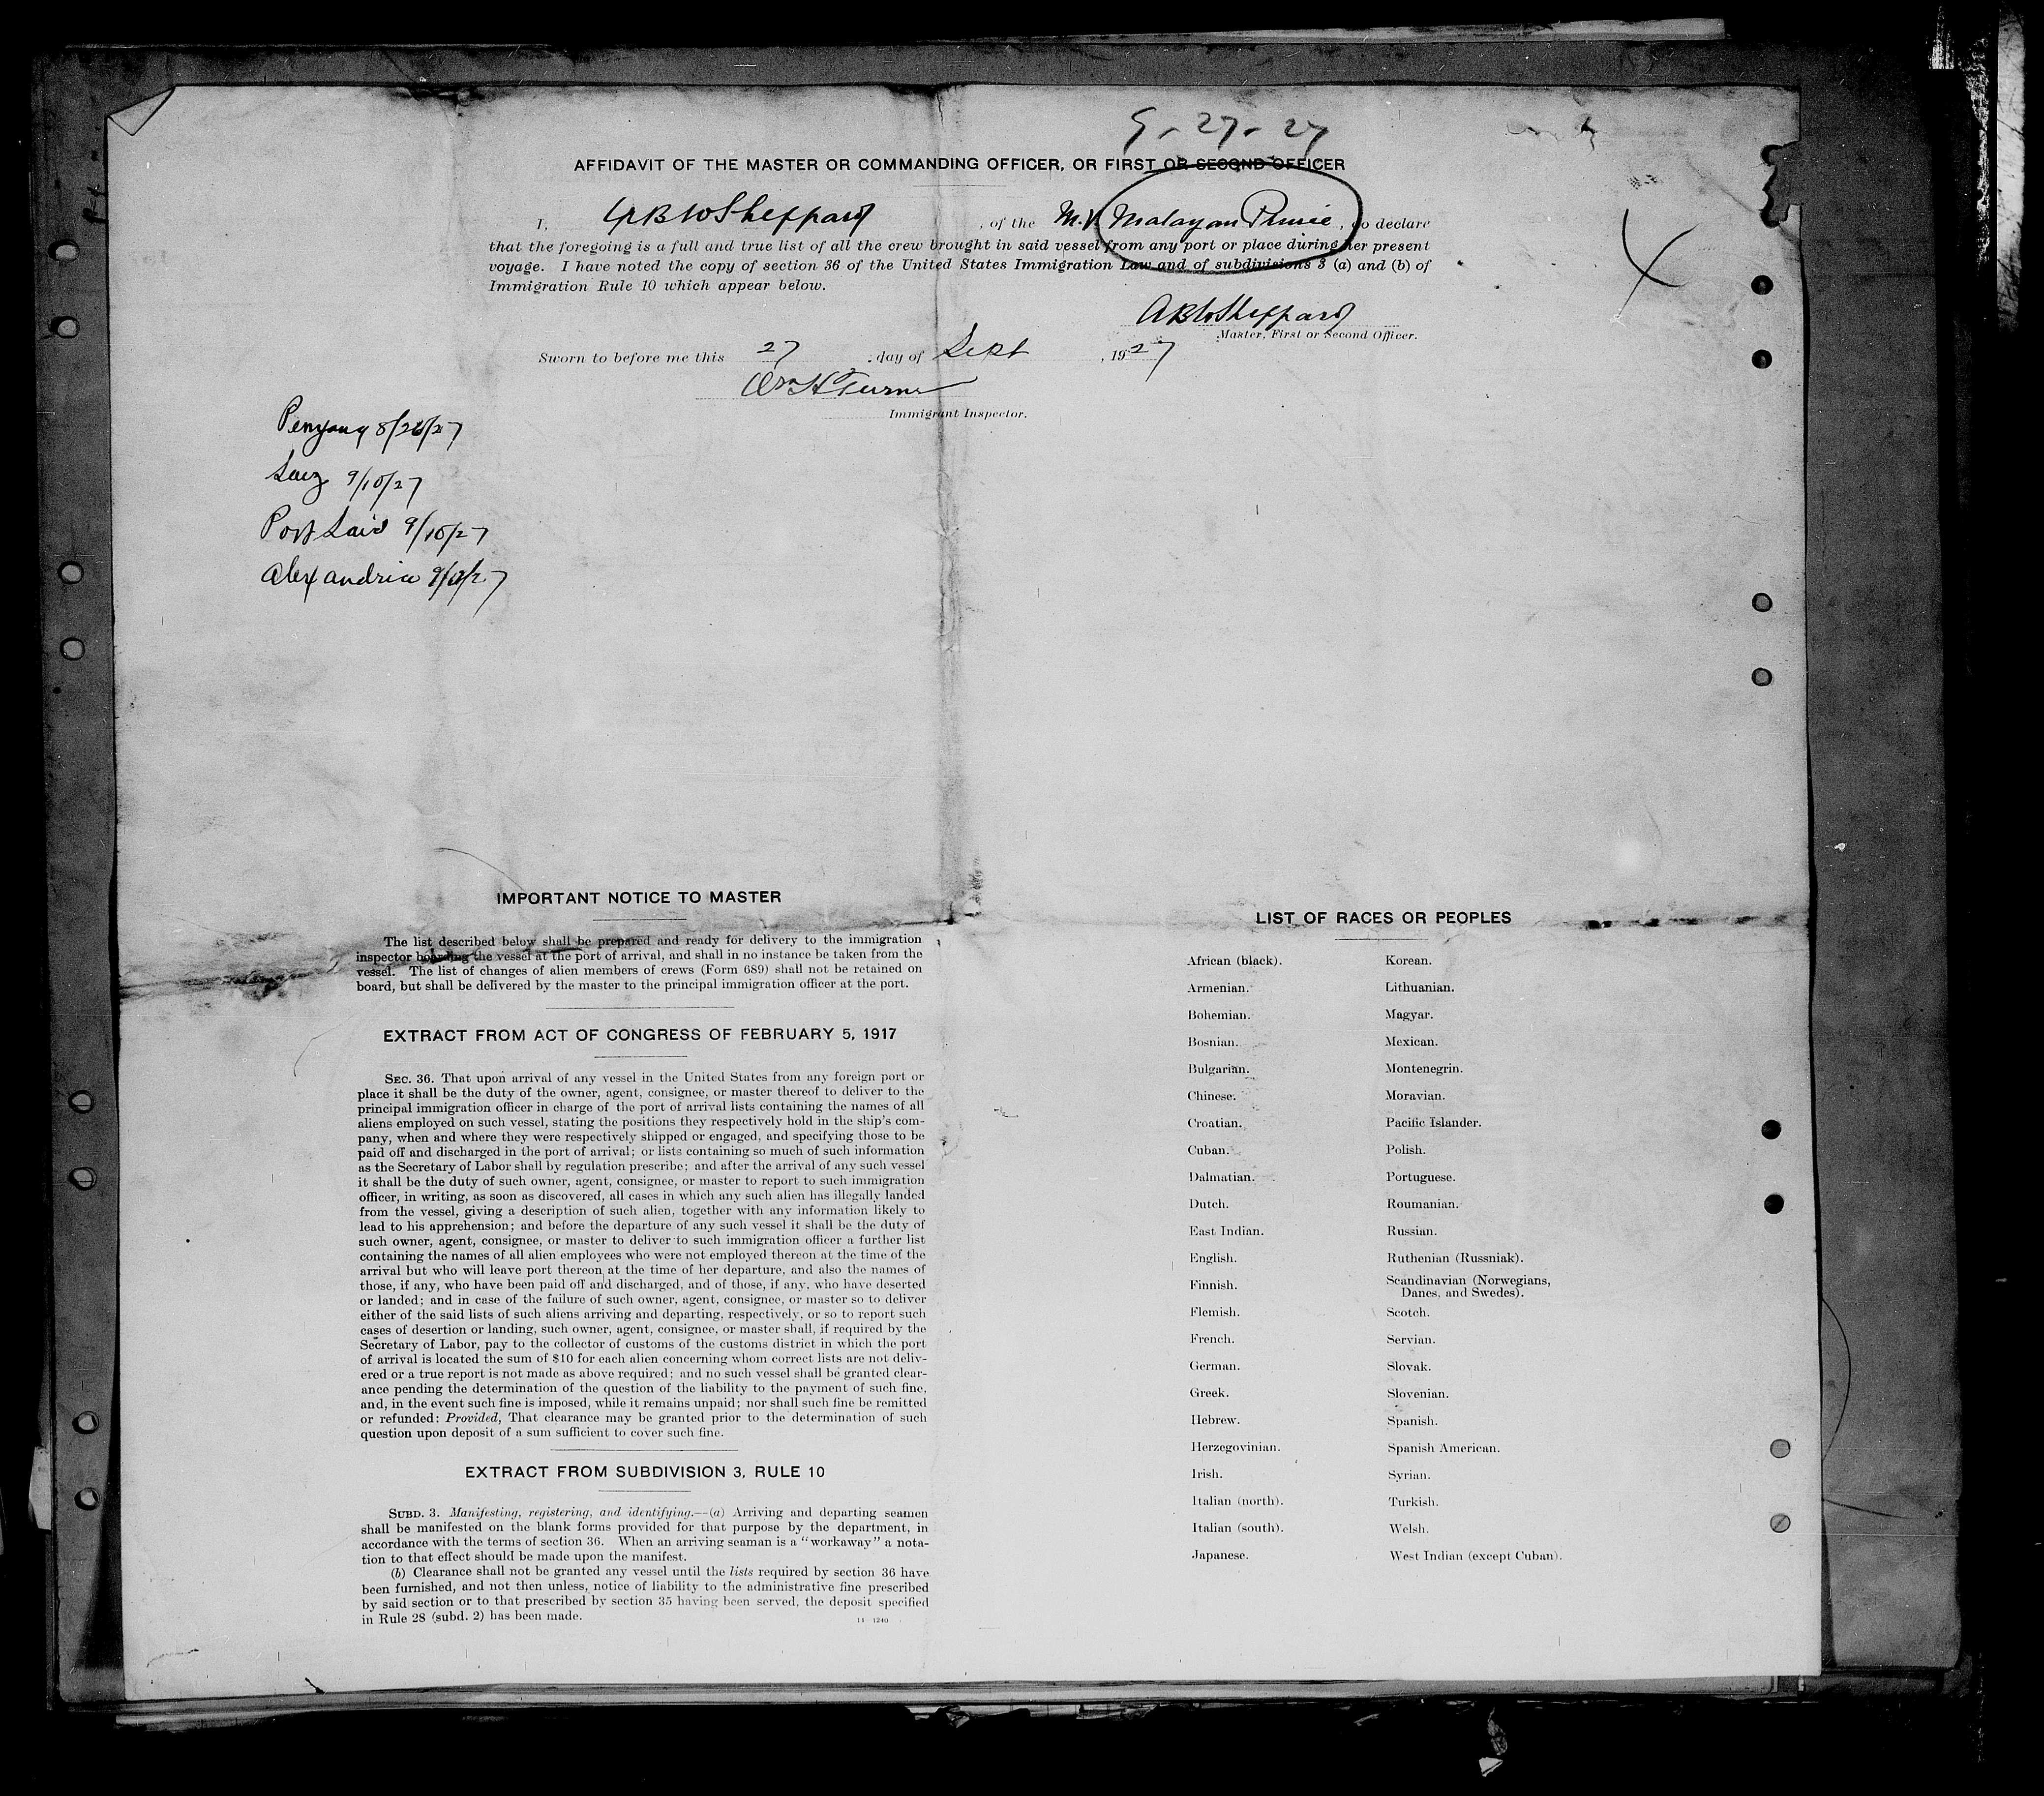 9-27-27
AFFIDAVIT OF THE MASTER OR COMMANDING OFFICER, OR FIRST OR SECOND OFFICER
I, ABWSheppard, of the M.V. Malayan Prince, do declare
that the foregoing is a full and true list of all the crew brought in said vessel from any port or place during her present
voyage. I have noted the copy of section 36 of the United States Immigration Law and of subdivisions 3 (a) and (b) of
Immigration Rule 10 which appear below.
ABWSheppard
Master, First or Second Officer.
Sworn to before me this 27 day of Sept, 1927
Wm H Turner
Immigrant Inspector.
Penyang 8/26/27
Suez 9/10/27
Port Said 9/10/27
Alexandria 9/27
IMPORTANT NOTICE TO MASTER
The list described below shall be prepared and ready for delivery to the immigration
inspector boarding the vessel at the port of arrival, and shall in no instance be taken from the
vessel. The list of changes of alien members of crews (Form 689) shall not be retained on
board, but shall be delivered by the master to the principal immigration officer at the port.
EXTRACT FROM ACT OF CONGRESS OF FEBRUARY 5, 1917
SEC. 36. That upon arrival of any vessel in the United States from any foreign port or
place it shall be the duty of the owner, agent, consignee, or master thereof to deliver to the
principal immigration officer in charge of the port of arrival lists containing the names of all
aliens employed on such vessel, stating the positions they respectively hold in the ship's com-
pany, when and where they were respectively shipped or engaged, and specifying those to be
paid off and discharged in the port of arrival; or lists containing so much of such information
as the Secretary of Labor shall by regulation prescribe; and after the arrival of any such vessel
it shall be the duty of such owner, agent, consignee, or master to report to such immigration
officer, in writing, as soon as discovered, all cases in which any such alien has illegally landed
from the vessel, giving a description of such alien, together with any information likely to
lead to his apprehension; and before the departure of any such vessel it shall be the duty of
such owner, agent, consignee, or master to deliver to such immigration officer a further list
containing the names of all alien employees who were not employed thereon at the time of the
arrival but who will leave port thereon at the time of her departure, and also the names of
those, if any, who have been paid off and discharged, and of those, if any, who have deserted
or landed; and in case of the failure of such owner, agent, consignee, or master so to deliver
either of the said lists of such aliens arriving and departing, respectively, or so to report such
cases of desertion or landing, such owner, agent, consignee, or master shall, if required by the
Secretary of Labor, pay to the collector of customs of the customs district in which the port
of arrival is located the sum of $10 for each alien concerning whom correct lists are not deliv-
ered or a true report is not made as above required; and no such vessel shall be granted clear-
ance pending the determination of the question of the liability to the payment of such fine,
and, in the event such fine is imposed, while it remains unpaid; nor shall such fine be remitted
or refunded: Provided, That clearance may be granted prior to the determination of such
question upon deposit of a sum sufficient to cover such fine.
EXTRACT FROM SUBDIVISION 3, RULE 10
SUBD. 3. Manifesting, registering, and identifying.—(a) Arriving and departing seamen
shall be manifested on the blank forms provided for that purpose by the department, in
accordance with the terms of section 36. When an arriving seaman is a "workaway" a nota-
tion to that effect should be made upon the manifest.
(b) Clearance shall not be granted any vessel until the lists required by section 36 have
been furnished, and not then unless, notice of liability to the administrative fine prescribed
by said section or to that prescribed by section 35 having been served, the deposit specified
in Rule 28 (subd. 2) has been made.
14 1240
LIST OF RACES OR PEOPLES
African (black).
Armenian.
Bohemian.
Bosnian.
Bulgarian.
Chinese.
Croatian.
Cuban.
Dalmatian.
Dutch.
East Indian.
English.
Finnish.
Flemish.
French.
German.
Greek.
Hebrew.
Herzegovinian.
Irish.
Italian (north).
Italian (south).
Japanese.
Korean.
Lithuanian.
Magyar.
Mexican.
Montenegrin.
Moravian.
Pacific Islander.
Polish.
Portuguese.
Roumanian.
Russian.
Ruthenian (Russniak).
Scandinavian (Norwegians,
Danes, and Swedes).
Scotch.
Servian.
Slovak.
Slovenian.
Spanish.
Spanish American.
Syrian.
Turkish.
Welsh.
West Indian (except Cuban).